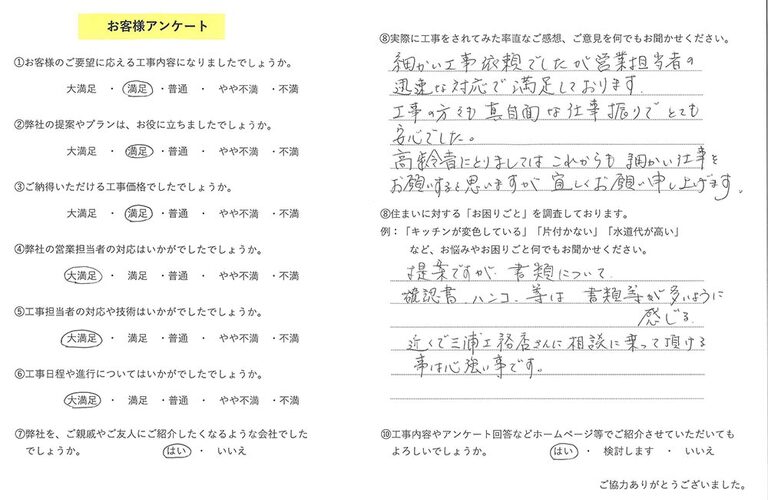 お客様アンケート
①お客様のご要望に応える工事内容になりましたでしょうか。
大満足 ・ 満足 ・普通 ・ やや不満 ・不満
②弊社の提案やプランは、お役に立ちましたでしょうか。
大満足 ・ 満足 ・普通 ・ やや不満 ・不満
③ご納得いただける工事価格でしたでしょうか。
大満足 ・ 満足 ・普通 ・ やや不満 ・不満
④弊社の営業担当者の対応はいかがでしたでしょうか。
大満足 ・ 満足 ・普通 ・ やや不満 ・不満
⑤工事担当者の対応や技術はいかがでしたでしょうか。
大満足 ・ 満足 ・普通 ・ やや不満 ・不満
⑥工事日程や進行についてはいかがでしたでしょうか。
大満足 ・ 満足 ・普通 ・ やや不満 ・不満
⑦弊社を、ご親戚やご友人にご紹介したくなるような会社でした
でしょうか。 はい ・ いいえ
⑧実際に工事をされてみた率直なご感想、ご意見を何でもお聞かせください。
細かい工事依頼でしたが営業担当者の
迅速な対応で満足しております.
工事の方々も真自面な仕事振りでとても
安心でした。
高齢者にとりましてはこれからも細かい仕事を
お願いすると思いますが宜しくお願い申し上げます.
⑧住まいに対する「お困りごと」を調査しております。
例：「キッチンが変色している」「片付かない」「水道代が高い」
など、お悩みやお困りごと何でもお聞かせください。
提案ですが 書類について
確認書.ハンコ.等は 書類等が多いように
感じる.
近くで三浦工務店さんに相談に乗って頂ける
事は心強い事です。
⑩工事内容やアンケート回答などホームページ等でご紹介させていただいても
よろしいでしょうか。 はい ・ 検討します ・ いいえ
ご協力ありがとうございました。